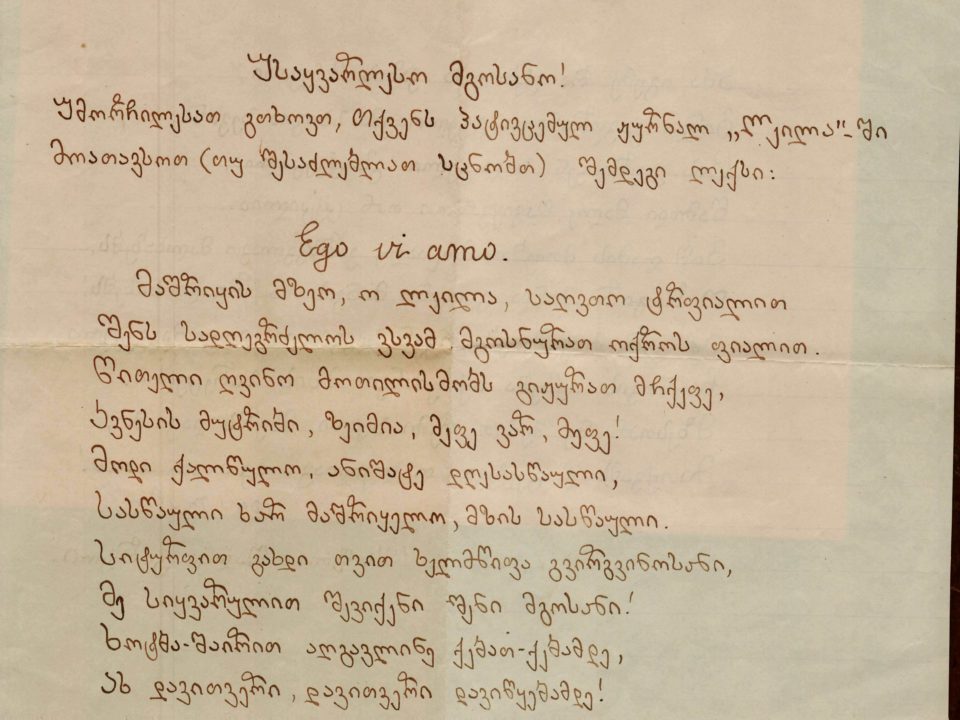 უსაყვარლესო მგოსანო!
უმორჩილესათ გთხოვთ, თქვენს პატივცემულ ჟურნალ „ლეილა"-ში
მოათავსოთ (თუ შესაძლებლათ სცნობთ) შემდეგი ლექსი:
Ego vi amo.
მაშრიყის მზეო, ო ლეილა, საღვთო ტრფიალით
შენს სადღეგრძელოს ვსვამ მგოსნურათ ოქროს ფიალით.
წითელი ღვინო მოთილისმობს გიჟურათ მჩქეფე,
ჰკვნესის მუტრიბი, ზეიმია, მეფე ვარ, მეფე!
მოდი ქალწულო, ანიშატე დღესასწაული,
სასწაული ხარ მაშრიყელო, მზის სასწაული.
სიტურფით გახდი თვით ხელმწიფა გვირგვინოსანი,
მე სიყვარულით შევიქენი შენი მგოსანი!
ხოტბა-შაირით აღგავლინე ქებათ-ქებამდე,
ახ დავითვერი, დავითვერი დავიწყებამდე!